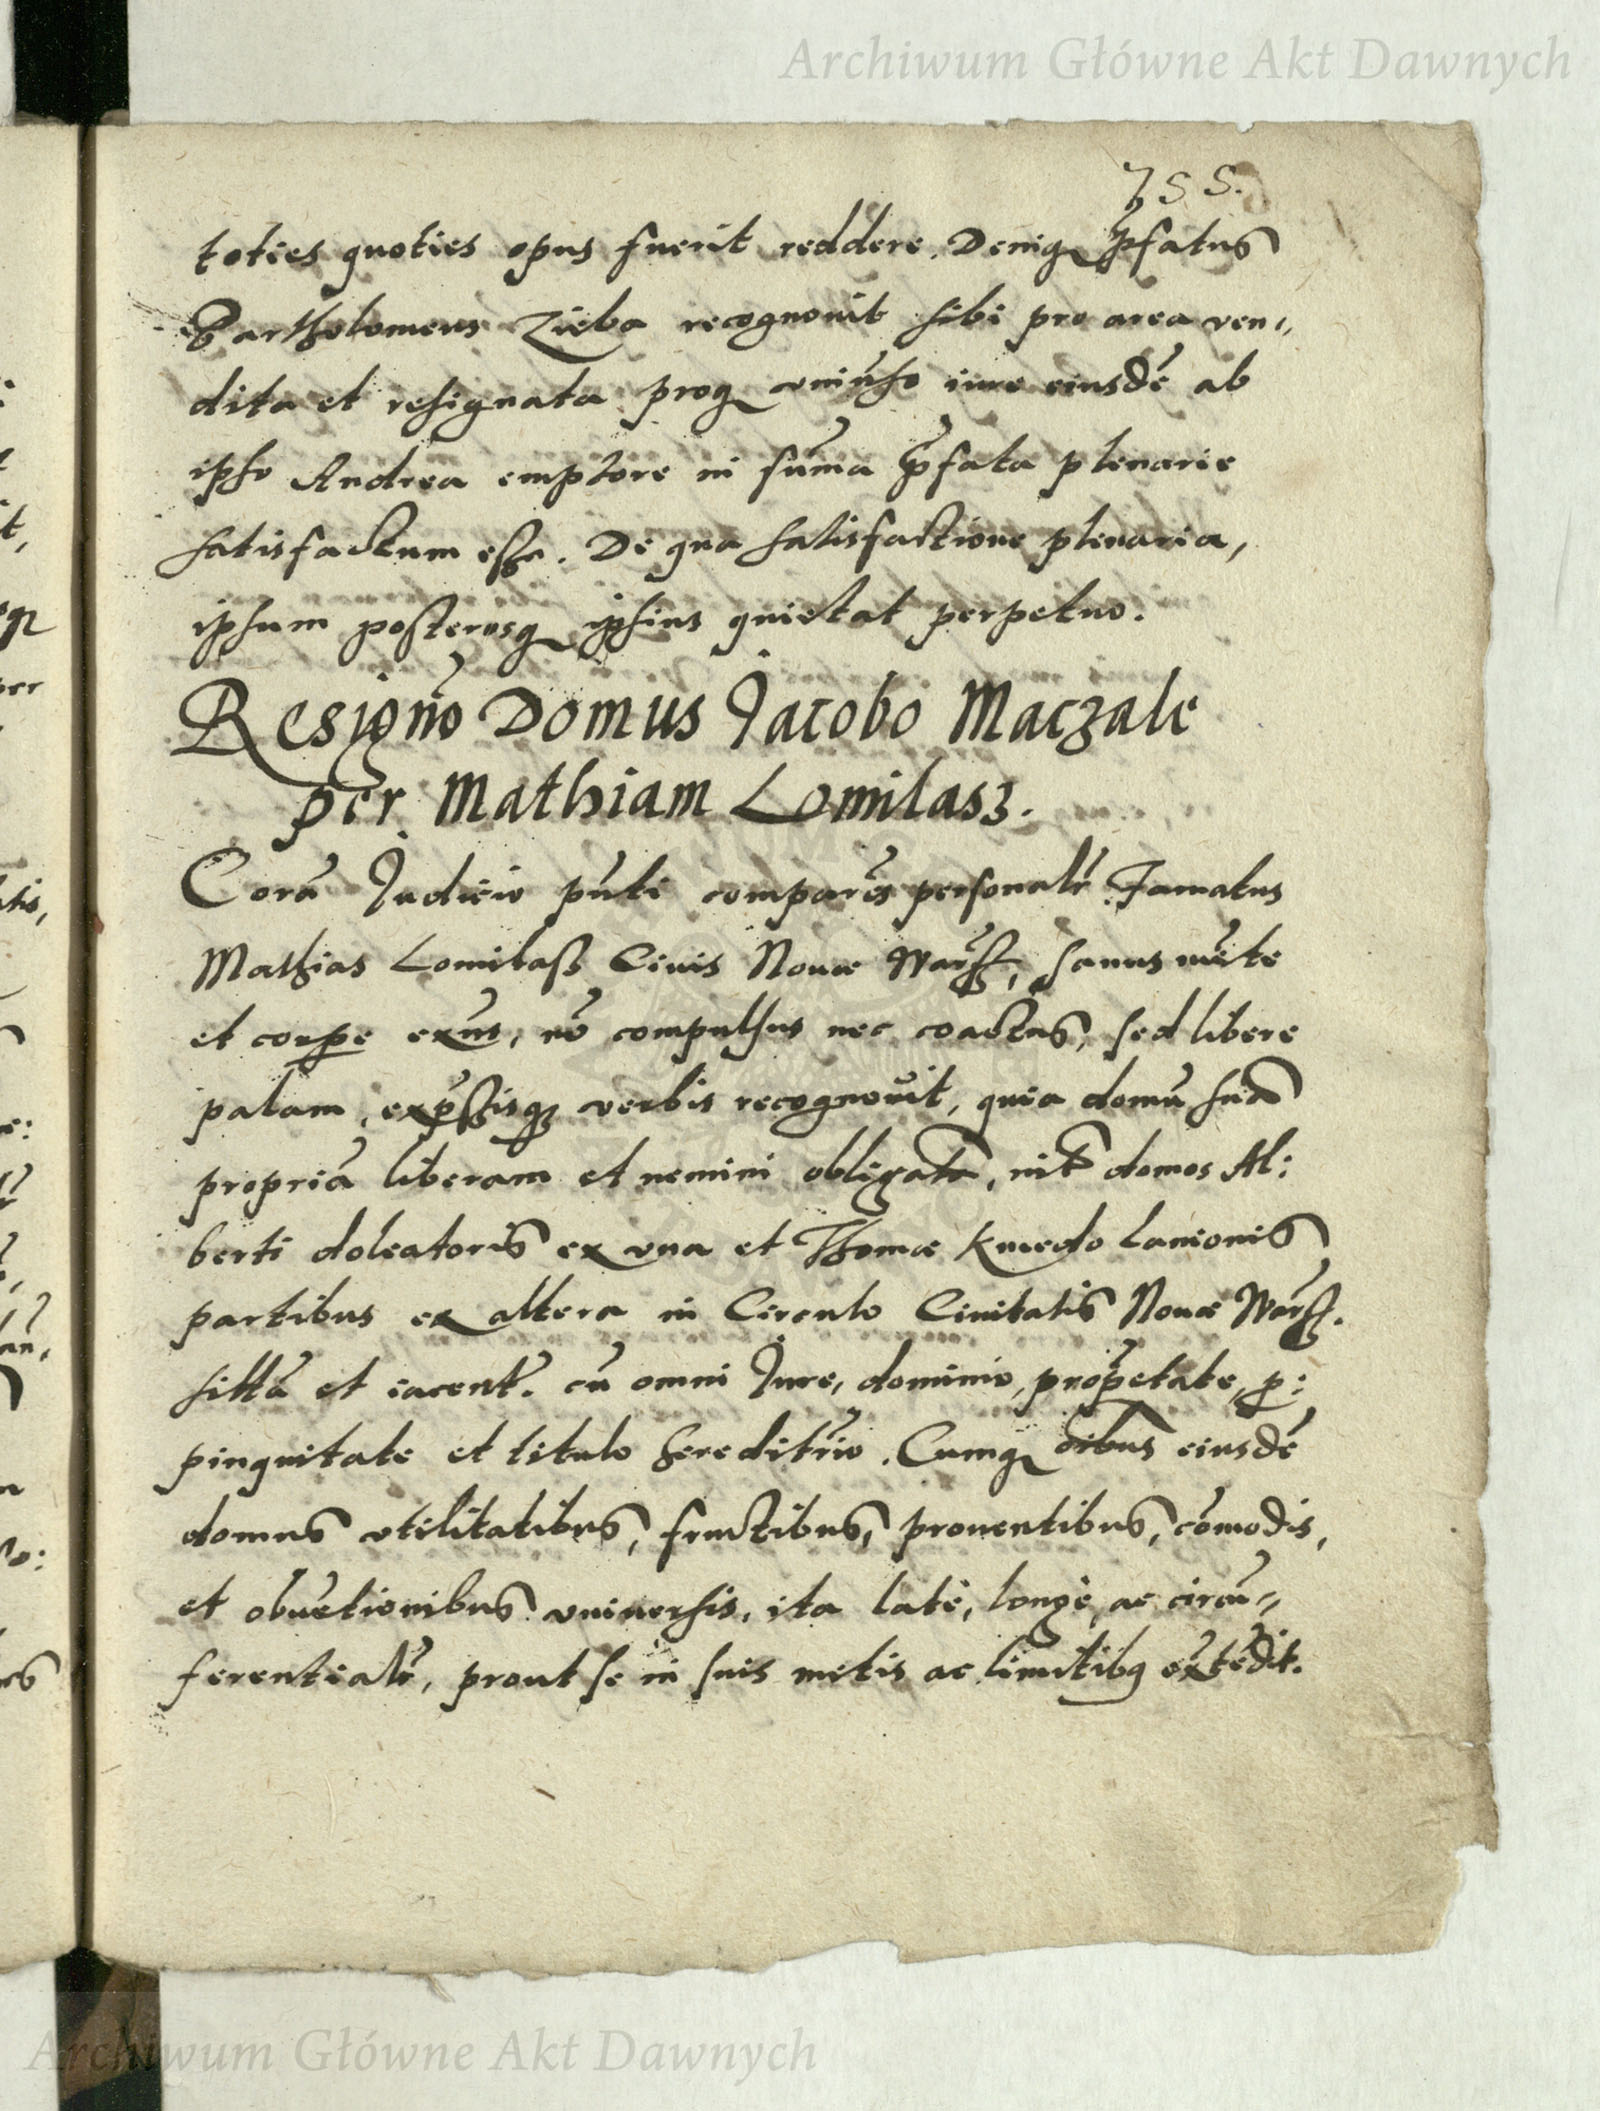 Archiwum Główne Akt Dawnych
755.
toties quoties opus fuerit reddere. Deniq, p̃fatus
Bartholomeus Zieba recognouit sibi pro area ven„
dita et resignata proq, vniũso iure eiusdẽ ab
ipso Andrea emptore in sũma p̃fata plenarie
satisfactum esse. De qua satisfactione plenaria,
ipsum posterosq, ipsius quietat perpetuo.
Resignõ Domus Jacobo Maczale
per Mathiam Lomilasz.
Corã Judicio pñti comparẽs personalr̃ Famatus
Mathias Lomilasz Ciuis Nouæ Warsz, sanus mẽte
et corpe exñs, nõ compulsus nec coactus, sed libere
palam, exp̃ssisq, verbis recognouit, quia domũ suã
propriã liberam et nemini obligatã, int̃ domos Al:
berti doleatoris ex vna et Thomæ Kmedo lanionis
partibus ex altera in Circulo Ciuitatis Nouæ Warsz.
sittã et iacent̃. cũ omni Jure, dominio, prop̃etate, p:
pinquitate et titulo hereditr̃io. Cumq, oĩbus eiusdẽ
domus vtilitatibus, fructibus, prouentibus, cõmodis,
et obuẽtionibus vniuersis, ita latè, longè, ac circũ„
ferentialr̃, prout se in suis metis ac limitibq extẽdit.
Archiwum Główne Akt Dawnych